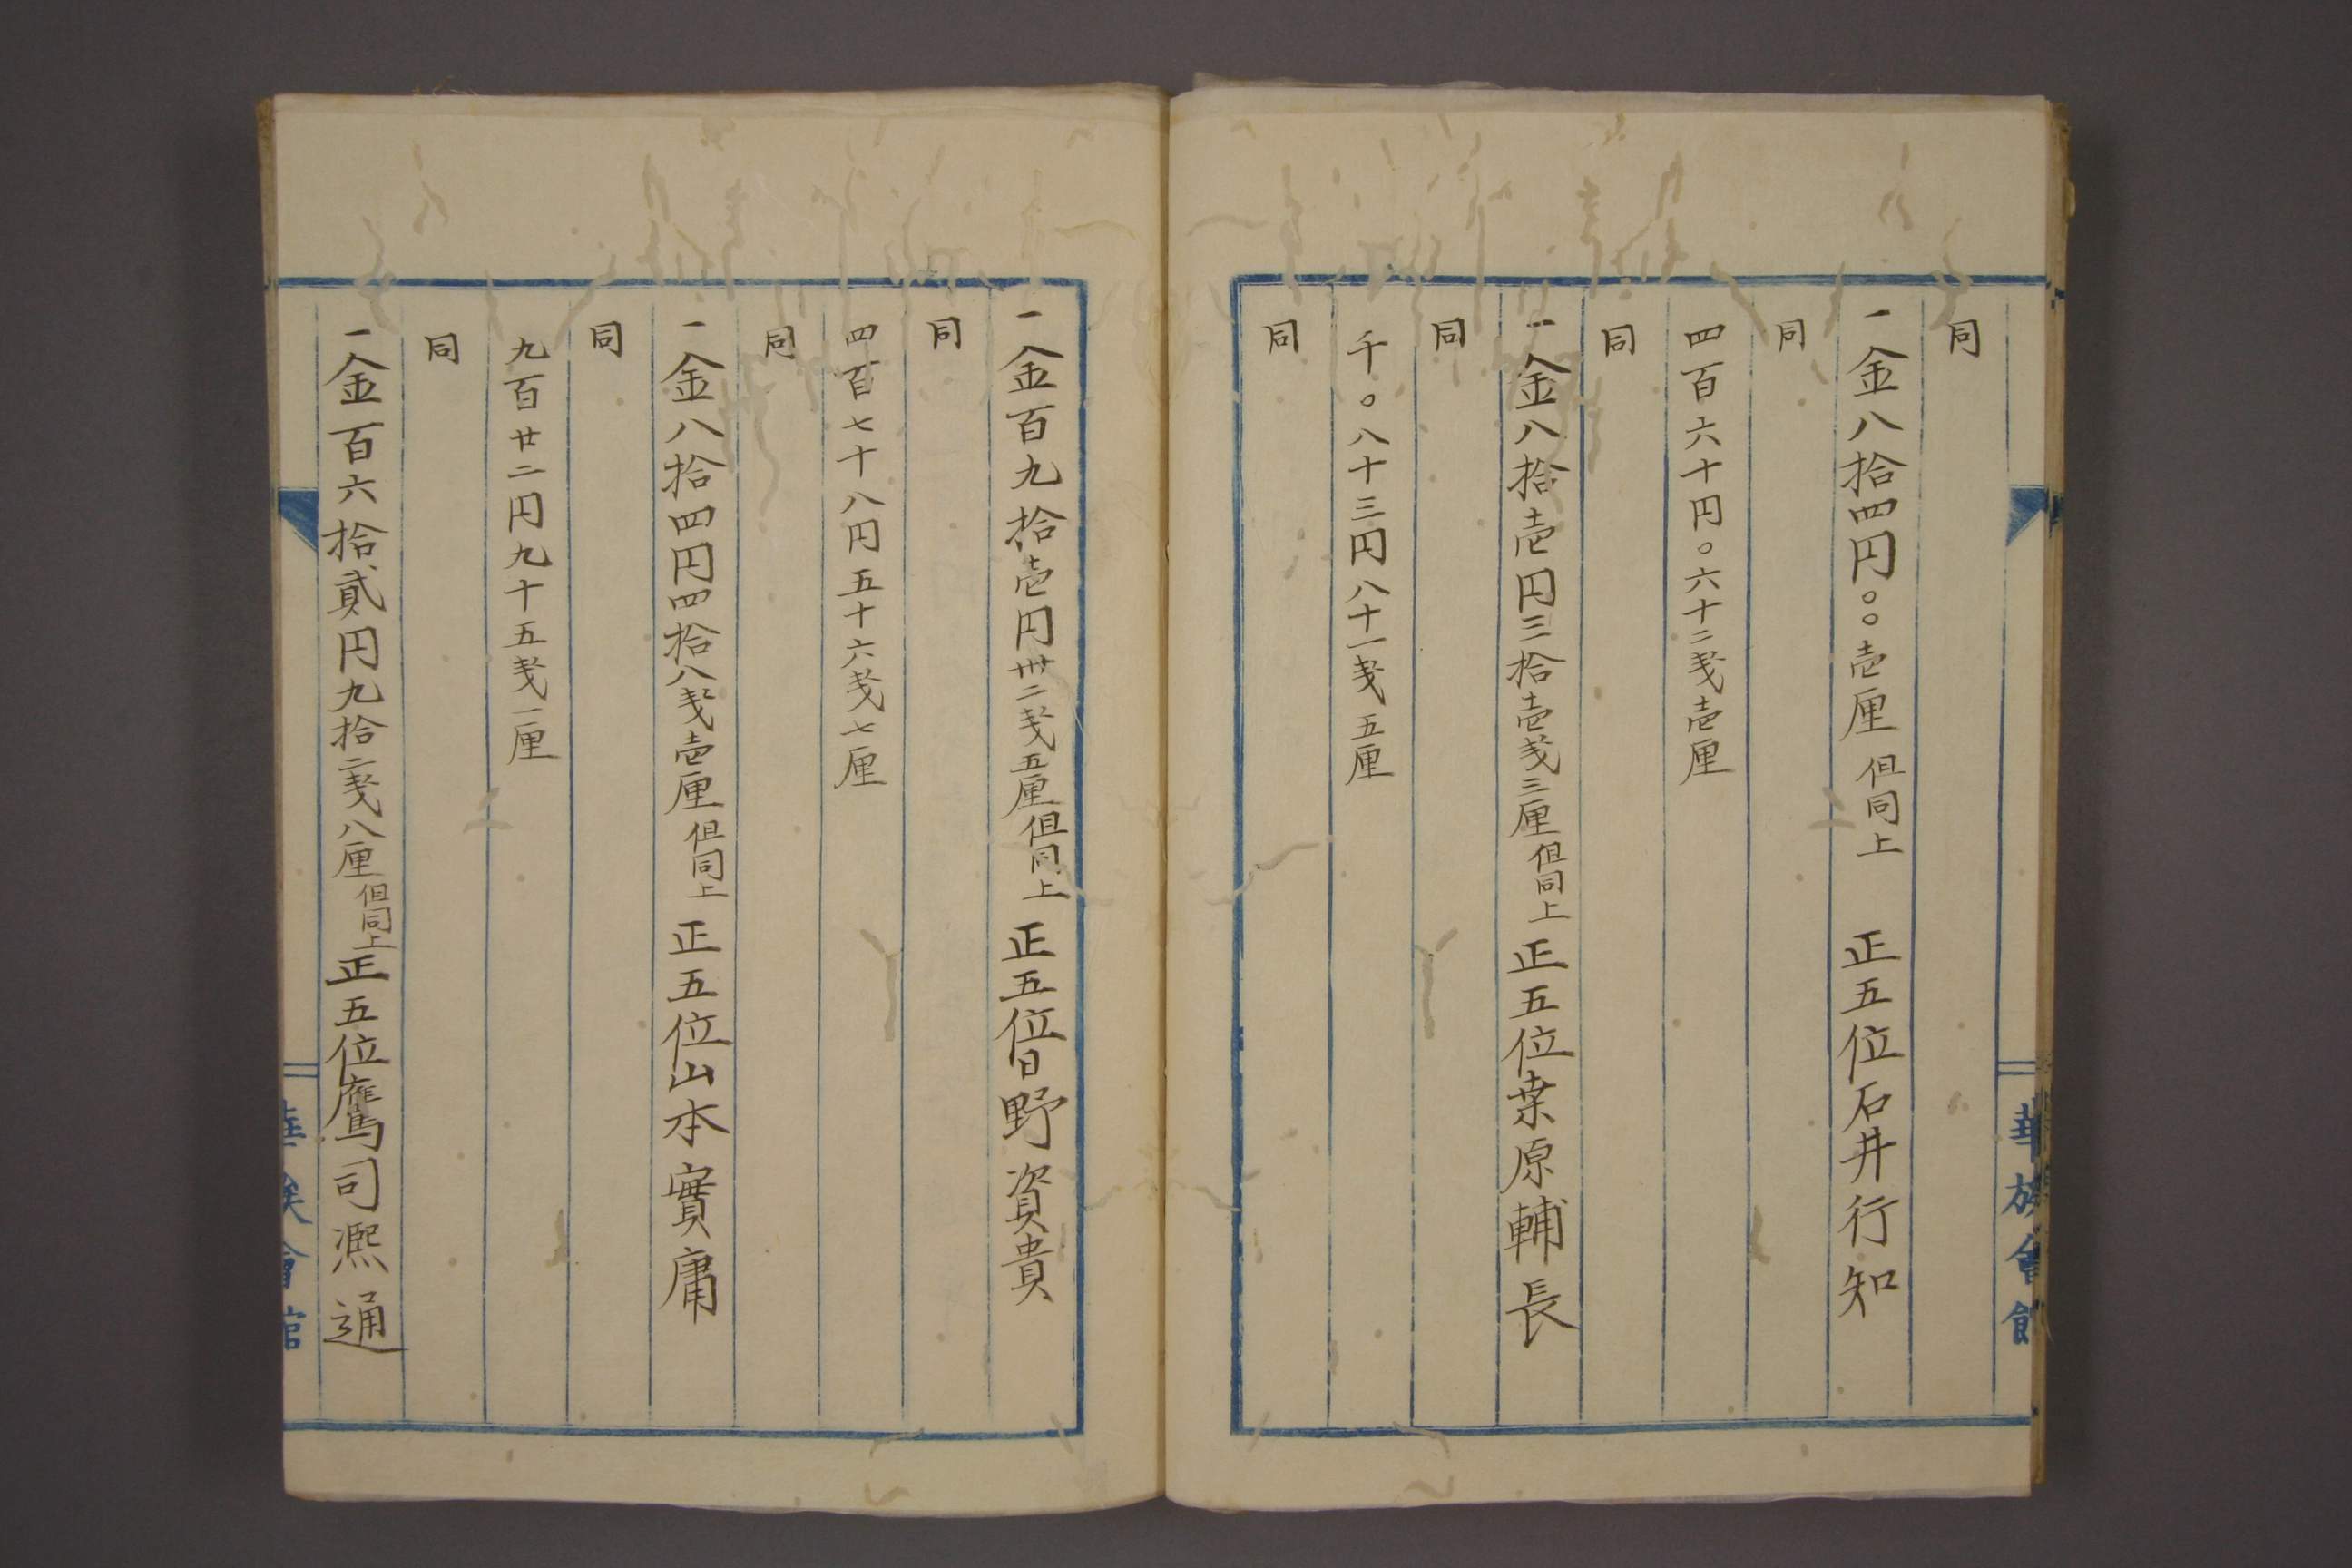 華族會館
同
一金八拾四円〇〇壱厘 但同上 正五位石井行知
同
四百六十円〇六十二戔壱厘
同
一金八拾壱円三拾壱戔三厘 但同上 正五位桒原輔長
同
千〇八十三円八十一戔五厘
同
一金百九拾壱円卅二戔五厘 但同上 正五位日野資貴
同
四百七十八円五十六戔七厘
同
一金八拾四円四拾八戔壱厘 但同上 正五位山本實庸
同
九百廿二円九十五戔一厘
同
一金百六拾貳円九拾二戔八厘 但同上 正五位鷹司凞通
華族會館